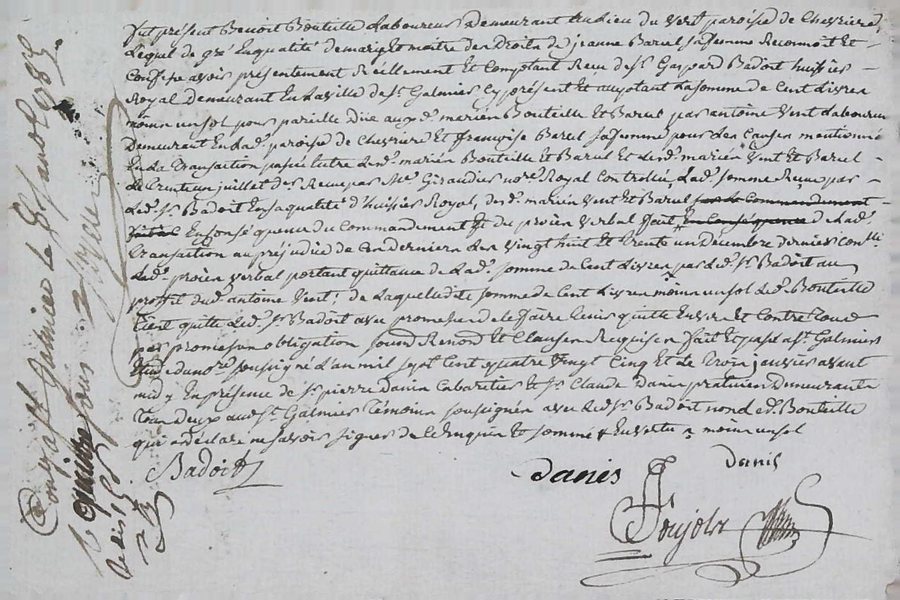 fut présent Benoit Bouteille Laboureur Demeurant au Lieu du Vert paroisse de Chevriere
Lequel de gré En qualité de mary Et maitre des Droits de jeanne Barel sa femme Reconnoit Et
Confesse avoir présentement Réellement Et Comptant Reçu de Sr. Gaspard Badoit huissier
Royal demeurant En la ville de St. Galmier Cy présent Et acceptant La somme de Cent Livres
moins un sol pour pareille düe aux d. mariés Bouteille Et Barel par antoine Vent Laboureur
Demeurant En lad. paroisse de Chevriere Et françoise Barel sa femme pour Les Causes mentionnées
En La Transaction passée Entre Lesd. mariés Bouteille Et Barel Et Lesd. mariés Vent Et Barel
Le Trente un juillet der Reçue par Me. Giraudier nore. Royal Controllée, Lad. somme Reçue par
Led. Sr. Badoit En sa qualité d'huissier Royal, desd. mariés Vent Et Barel
En Conséquence du Commandement Et du procès verbal fait de Lad.
Transaction au préjudice de Ces derniers Les Vingt huit Et Trente un Décembre dernier
Led. procès verbal portant quittance de Lad. somme de Cent Livres par Led. Sr. Badoit au
proffit dud. antoine Vent; de Laquelle dite somme de Cent Livres moins un sol Led. Bouteille
Tient quitte Led. Sr. Badoit avec promesse de Le faire tenir quitte Envers Et Contre Tous
par promesse obligation Renond Et Clauses Requises fait Et passé a St. Galmier
Etude du nore. soussigné L'an mil sept Cent quatre Vingt Cinq Et Le Trois janvier avant
midy En présence de Sr. pierre Danis Cabaretier Et Sr. Claude Danis praticien Demeurants
Tous deux aud. St. Galmier Témoins soussignés avec Led. Sr. Badoit non Led. Bouteille
qui a déclaré ne savoir signer de Ce Enquis Et sommé moins un sol
Badoit
Danis
Danis
Poujola
a St. Galmier Le 1785.
Reçu quatre